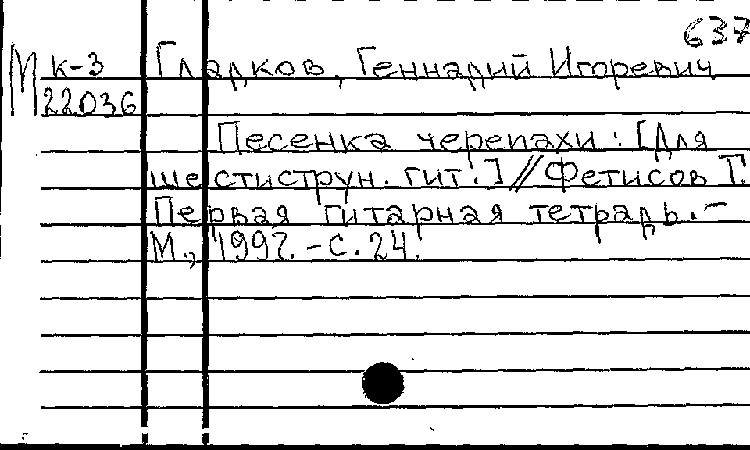 637
М к-3 Гладков, Геннадий Игоревич
22036
Песенка черепахи : [Для
шестиструн. гит.] // Фетисов Г.
Первая гитарная тетрадь. –
М., 1997. – С. 24.